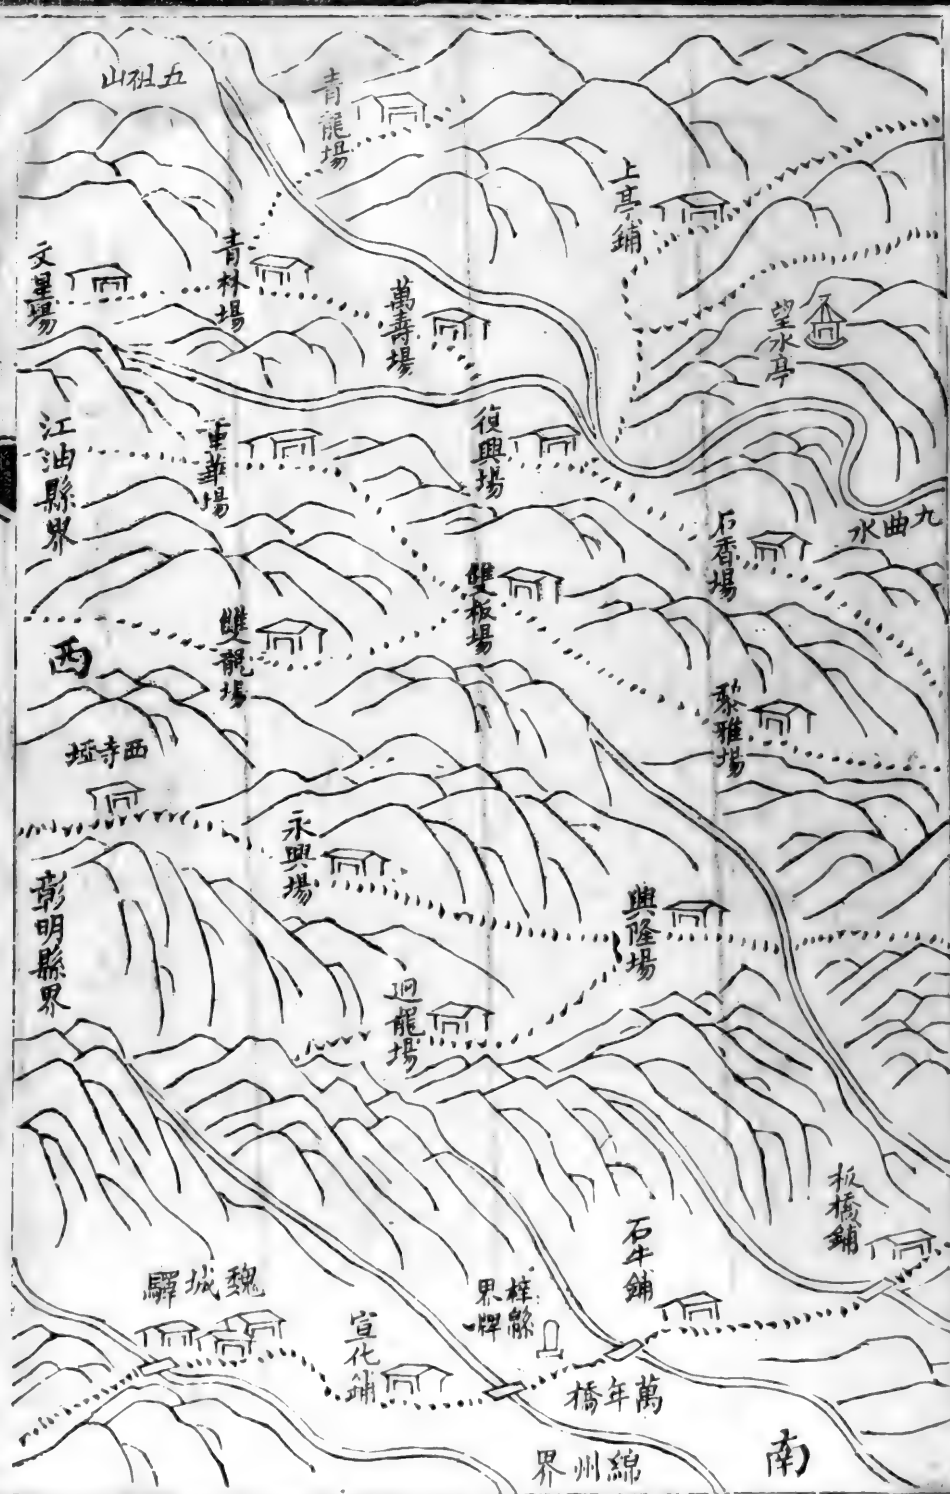 五祖山
青龍場
上亭鋪
文星場
青林場
萬壽場
望水亭
江油縣界
重華場
復興場
九曲水
石香場
雙板場
雙龍場
西
黎雅場
西寺埡
永興場
彰明縣界
興隆場
迴龍場
板橋鋪
石牛鋪
魏城驛
梓綿
界牌
宣化鋪
萬年橋
綿州界
南